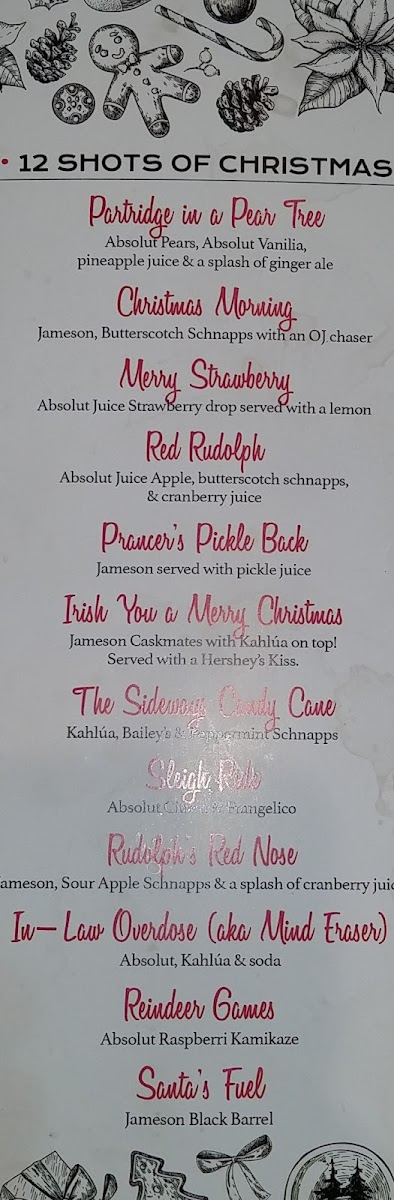 • 12 SHOTS OF CHRISTMAS
Partridge in a Pear Tree
Absolut Pears, Absolut Vanilia,
pineapple juice & a splash of ginger ale
Christmas Morning
Jameson, Butterscotch Schnapps with an OJ chaser
Merry Strawberry
Absolut Juice Strawberry drop served with a lemon
Red Rudolph
Absolut Juice Apple, butterscotch schnapps,
& cranberry juice
Prancer's Pickle Back
Jameson served with pickle juice
Irish You a Merry Christmas
Jameson Caskmates with Kahlúa on top!
Served with a Hershey's Kiss.
The Sideways Candy Cane
Kahlúa, Bailey's & Peppermint Schnapps
Sleigh Ride
Absolut & Frangelico
Rudolph's Red Nose
Jameson, Sour Apple Schnapps & a splash of cranberry juic
In-Law Overdose (aka Mind Eraser)
Absolut, Kahlúa & soda
Reindeer Games
Absolut Raspberri Kamikaze
Santa's Fuel
Jameson Black Barrel